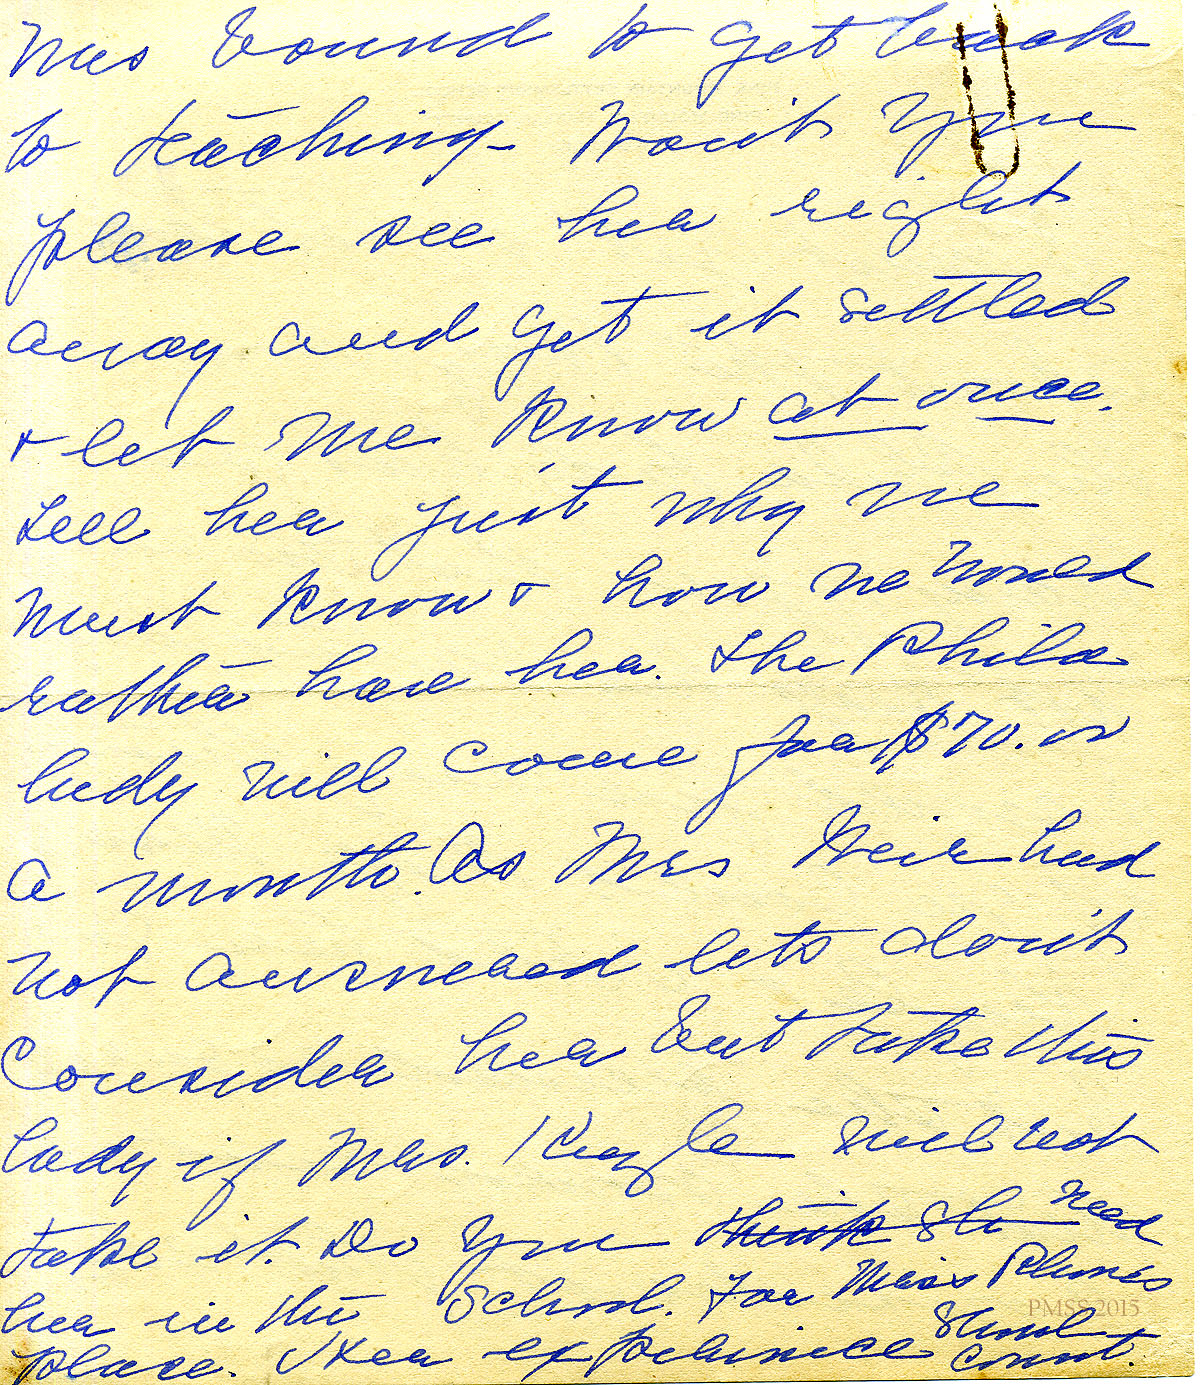 was bound to get back
to teaching – Won't you
please see her right
away and get it settled
& let me know at once.
Tell her just why we
must know & how we would
rather have her. The Phila
lady will come for $70. or
a month. As Mrs Weir had
not answered lets don't
Consider her but take this
lady if Mrs. will not
take it. Do you think she need
her in the School. For Miss
place. Her experience should
count.
PMSS 2015